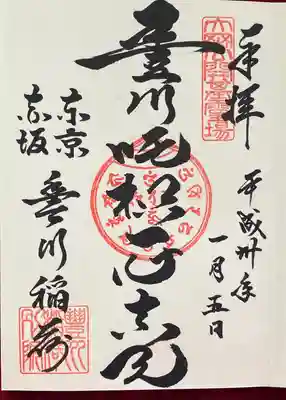 奉拝
平成卅年
一月五日
豊川吒枳尼真天
東京
赤坂
豊川稲荷